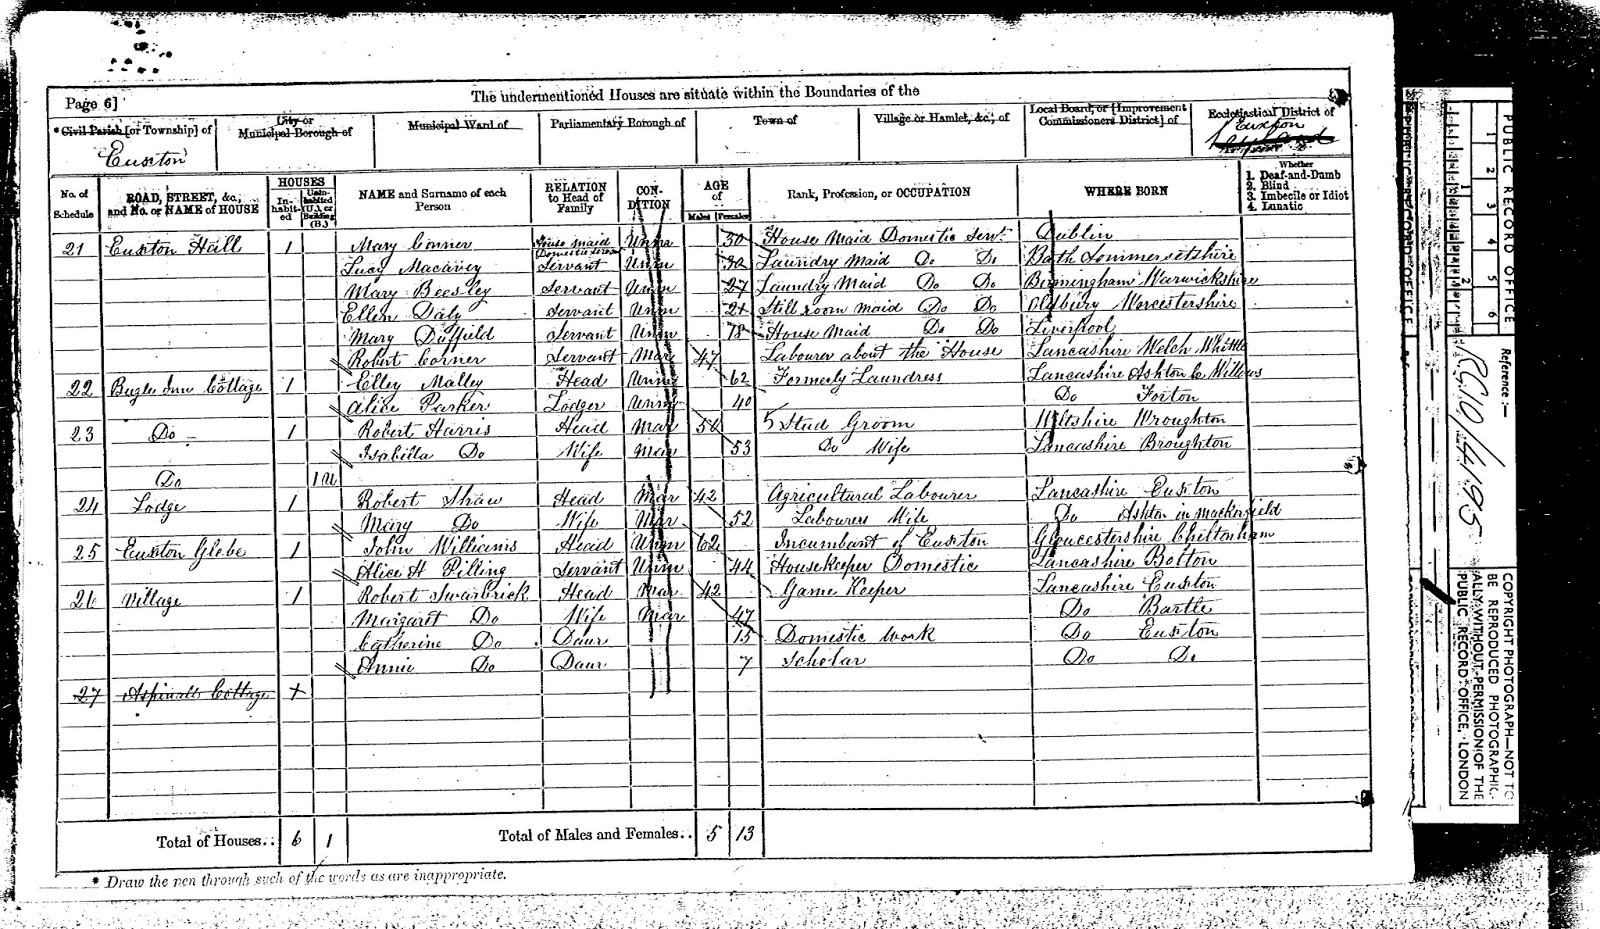 Page 6]
The undermentioned Houses are situate within the Boundaries of the
* Civil Parish [or Township] of
City or Municipal Borough of
Municipal Ward of
Parliamentary Borough of
Town of
Village or Hamlet, &c., of
Local Board, or [Improvement Commissioners District] of
Ecclesiastical District of
Euxton
Euxton
No. of Schedule
ROAD, STREET, &c., and No. or NAME of HOUSE
HOUSES
In-habit-ed
Unin-habited (U.), or Building (B.)
NAME and Surname of each Person
RELATION to Head of Family
CON-DITION
AGE of
Males
Females
Rank, Profession, or OCCUPATION
WHERE BORN
Whether
1. Deaf-and-Dumb
2. Blind
3. Imbecile or Idiot
4. Lunatic
21 Euxton Hall 1 Mary Conner House maid Domestic Servant Unm 30 House Maid Domestic Servt Dublin
Lucy Macavey Servant Unm 32 Laundry Maid Do Do Bath Sommersetshire
Mary Beesley Servant Unm 27 Laundry Maid Do Do Birmingham Warwickshire
Ellen Daly Servant Unm 21 Still room maid Do Do Oldbury Worcestershire
Mary Duffield Servant Unm 78 House Maid Do Do Liverpool
Robert Corner Servant Mar 47 Labourer about the House Lancashire Welch Whittle
22 Bugle Inn Cottage 1 Elley Malley Head Unm 62 Formerly Laundress Lancashire Ashton le Willows
Alice Parker Lodger Unm 40 Do Forton
23 Do 1 Robert Harris Head Mar Stud Groom Wiltshire Wroughton
Isabella Do Wife Mar 53 Do Wife Lancashire Broughton
Do 1 U
24 Lodge 1 Robert Shaw Head Mar 42 Agricultural Labourer Lancashire Euxton
Mary Do Wife Mar 52 Labourers Wife Do Ashton in Mackerfield
25 Euxton Glebe 1 John Williams Head Unm 62 Incumbant of Euxton Gloucestershire Cheltenham
Alice H Pilling Servant Unm 44 Housekeeper Domestic Lancashire Bolton
26 Village 1 Robert Swarbrick Head Mar 42 Game Keeper Lancashire Euxton
Margaret Do Wife Mar 47 Do Bartle
Catherine Do Daur 15 Domestic work Do Euxton
Annie Do Daur 7 Scholar Do Do
27 Aspinalls Cottage
Total of Houses.. 6 1 Total of Males and Females.. 5 13
* Draw the pen through such of the words as are inappropriate.
PUBLIC RECORD OFFICE
1 2 3 4 5 6
1 2
Reference :-
RG10/4195
COPYRIGHT PHOTOGRAPH—NOT TO BE REPRODUCED PHOTOGRAPHIC-ALLY WITHOUT PERMISSION OF THE PUBLIC RECORD OFFICE, LONDON